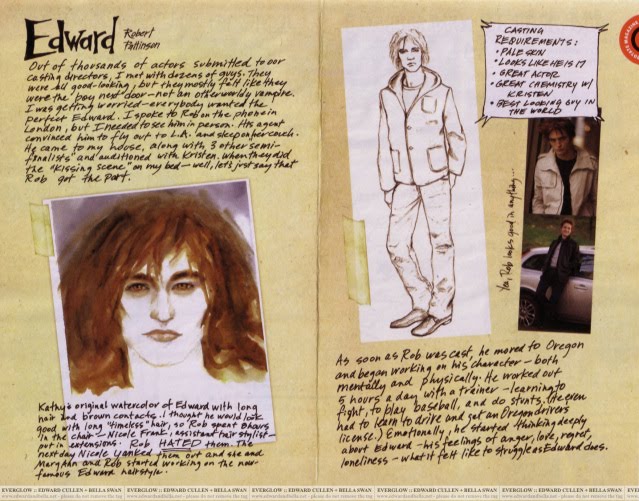 Edward Robert
Pattinson
Out of thousands of actors submitted to our
casting directors, I met with dozens of guys. They
were all good-looking, but they mostly felt like they
were the "boy next door" - not an otherworldly vampire.
I was getting worried - everybody wanted the
perfect Edward. I spoke to Rob on the phone in
London, but I needed to see him in person. His agent
convinced him to fly out to L.A. and sleep on her couch.
He came to my house, along with 3 other semi-
finalists and auditioned with Kristen. When they did
the "kissing scene" on my bed - well, let's just say that
Rob got the part.
Kathy's original watercolor of Edward with long
hair and brown contacts. I thought he would look
good with long "timeless" hair, so Rob spent 8 hours
in the chair - Nicole Frank, assistant hair stylist -
put in extensions. Rob HATED them. The
next day Nicole yanked them out and she and
Mary Ann and Rob started working on the now-
famous Edward hairstyle.
CASTING
REQUIREMENTS:
• PALE SKIN
• LOOKS LIKE HE IS 17
• GREAT ACTOR
• GREAT CHEMISTRY W/
KRISTEN
• BEST LOOKING GUY IN
THE WORLD
Yes, Rob looks good in anything...
As soon as Rob was cast, he moved to Oregon
and began working on his character - both
mentally and physically. He worked out
5 hours a day with a trainer - learning to
fight, to play baseball, and do stunts. (He even
had to learn to drive and get an Oregon drivers
license.) Emotionally, he started thinking deeply
about Edward - his feelings of anger, love, regret,
loneliness - what it felt like to struggle as Edward does.
EVERGLOW :: EDWARD CULLEN + BELLA SWAN
EVERGLOW :: EDWARD CULLEN + BELLA SWAN
EVERGLOW :: EDWARD CULLEN + BELLA SWAN
EVERGLOW :: EDWARD CULLEN + BELLA SWAN